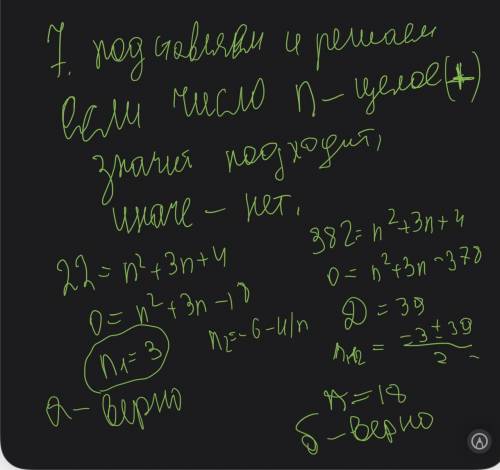 7. подставляем и решаем
если число n - целое (+)
значит подходит,
иначе - нет.
22 = n² + 3n + 4
0 = n² + 3n - 18
n₁ = 3
n₂ = -6 - и/п
а - верно
382 = n² + 3n + 4
0 = n² + 3n - 378
D = 39
n₁,₂ = -3 ± 39 / 2
n = 18
б - верно